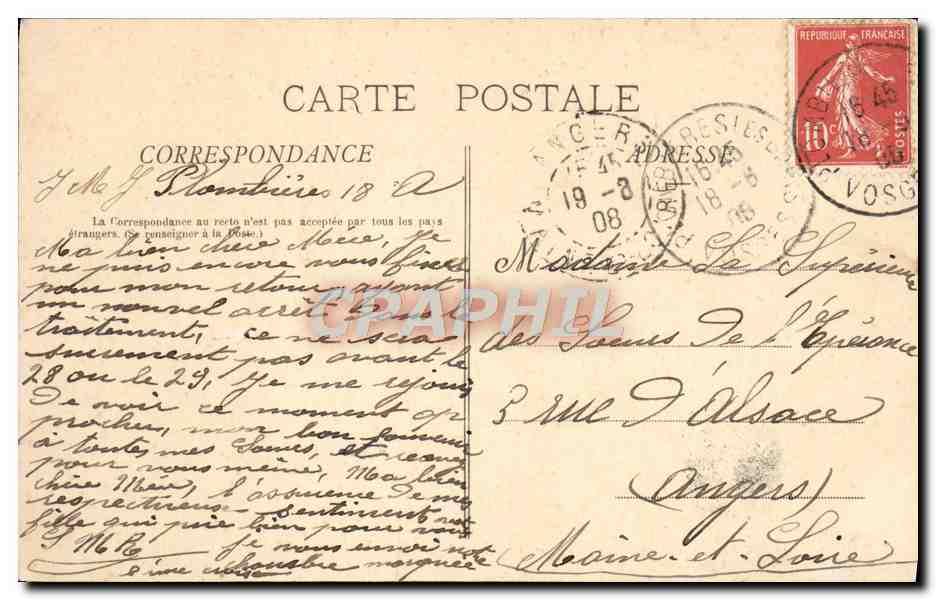 CARTE POSTALE
CORRESPONDANCE
ADRESSE
REPUBLIQUE FRANÇAISE
10c
POSTES
ANGERS
45
19 -8
08
PLOMBIERES LES BAINS
16 45
18 -8
08
VOSGES
J M J Plombières 18 A
La Correspondance au recto n'est pas acceptée par tous les pays
étrangers. (Se renseigner à la Poste.)
Ma bien chère Mère, Je
ne puis encore vous fixer
pour mon retour, ayant
un nouvel arrêt dans le
traitement, ce ne sera
surement pas avant le
28 ou le 29, Je me réjouis
de voir ce moment ap
procher, mon bon souvenir
à toutes mes Soeurs, et
pour vous même, Ma bien
chère Mère, l'assurance de mes
respectueux sentiments
fille qui prie bien pour vous
S M R
Je vous envoi
chambre marquée
d'une croix
Madame La Supérieure
des Soeurs de l'Espérance
3 rue d'Alsace
(Angers)
Maine-et-Loire
CPAPHIL